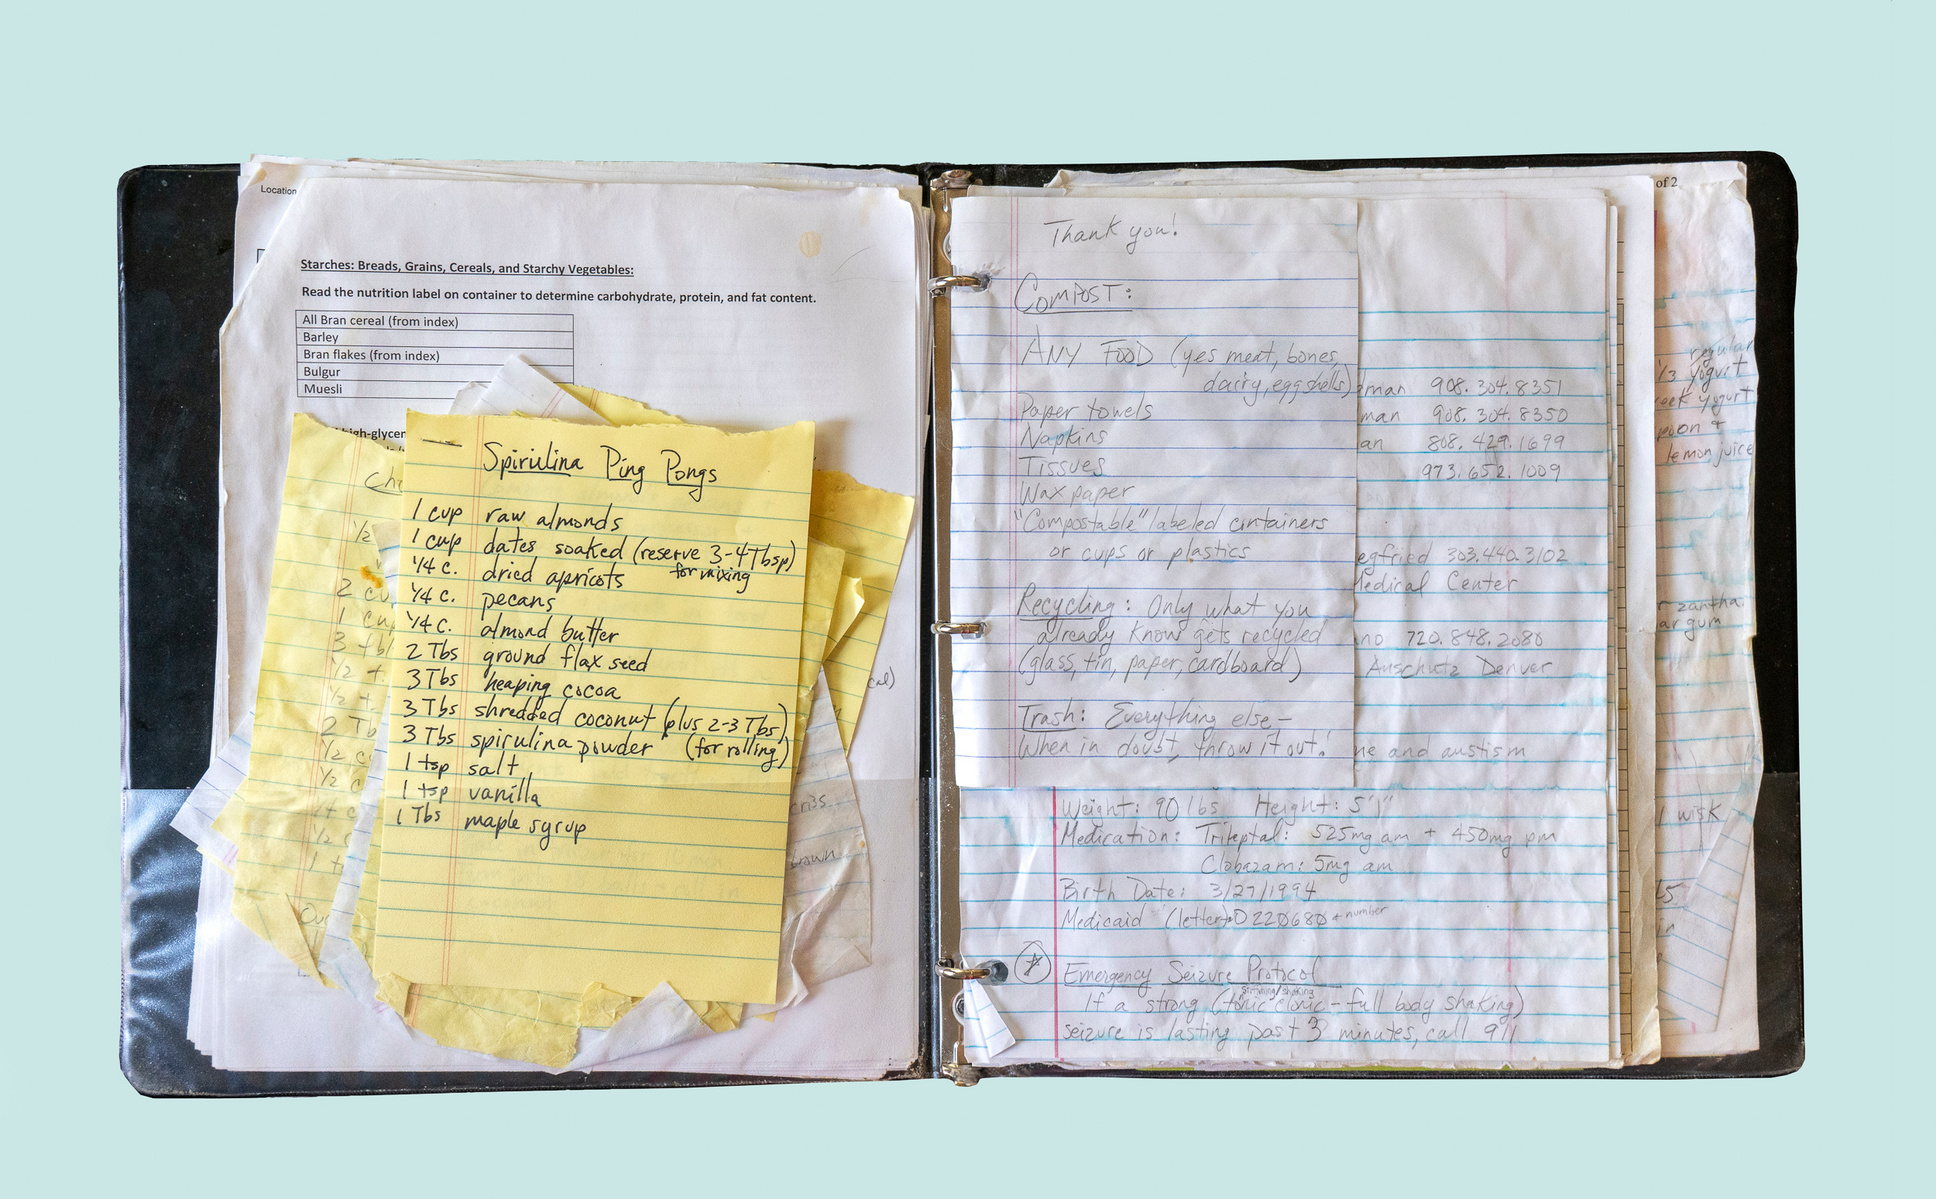 Location
Starches: Breads, Grains, Cereals, and Starchy Vegetables:
Read the nutrition label on container to determine carbohydrate, protein, and fat content.
All Bran cereal (from index)
Barley
Bran flakes (from index)
Bulgur
Muesli
high-glycer
Spirulina Ping Pongs
1 cup raw almonds
1 cup dates soaked (reserve 3-4 Tbsp)
for mixing
1/4 c. dried apricots
1/4 c. pecans
1/4 c. almond butter
2 Tbs ground flax seed
3 Tbs heaping cocoa
3 Tbs shredded coconut (plus 2-3 Tbs)
3 Tbs spirulina powder (for rolling)
1 tsp salt
1 tsp vanilla
1 Tbs maple syrup
1/2
2 cu
1 cu
3 tbl
1/2 t.
1/2 t.
2 Tb
1/2 c
1/2 c
1/2 c
1 t
cal)
Thank you!
COMPOST:
ANY FOOD (yes meat, bones,
dairy, eggshells)
Paper towels
Napkins
Tissues
Wax paper
"Compostable" labeled containers
or cups or plastics
Recycling: Only what you
already know gets recycled
(glass, tin, paper, cardboard)
Trash: Everything else-
When in doubt, throw it out!
man 908.304.8351
man 908.304.8350
an 808.429.1699
973.652.1009
egfried 303.440.3102
Medical Center
no 720.848.2080
Anschutz Denver
ne and austism
Weight: 90 lbs Height: 5'1"
Medication: Trileptal: 525mg am + 450mg pm
Clobazam: 5mg am
Birth Date: 3/27/1994
Medicaid (letter) D220680 + number
Emergency Seizure Protocol
If a strong (tonic clonic - full body shaking)
seizure is lasting past 3 minutes, call 911
of 2
regular
1/3 yogurt
reek yogurt
poon +
lemon juice
r zantha
ar gum
1 wisk